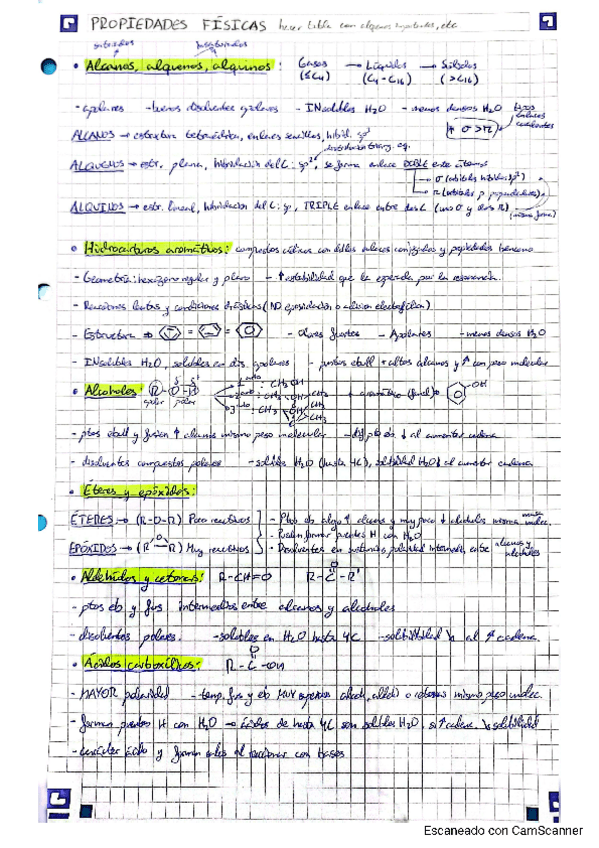 PROPIEDADES FÍSICAS hacer tabla con algunos importantes, etc
saturados insaturados
• Alcanos, alquenos, alquinos: Gases → Líquidos → Sólidos
(≤C4) (C4-C16) (>C16)
- apolares - buenos disolventes apolares - INsolubles H2O - menos densos H2O
ALCANOS → estructura tetraédrica, enlaces sencillos, hibrid. sp3
ALQUENOS → estr. plana, hibridación del C: sp2, se forma enlace DOBLE entre átomos
ALQUINOS → estr. lineal, hibridación del C: sp, TRIPLE enlace entre dos C (uno σ y dos π)
• Hidrocarburos aromáticos: compuestos cíclicos con dobles enlaces conjugados y propiedades benceno
- Geometría: hexágono regular y plano - ↑ estabilidad que la esperada por la resonancia.
- Reacciones lentas y condiciones drásticas (NO
- Estructura ⇒ = = - Olores fuertes - Apolares - menos densos H2O
- INsolubles H2O, solubles en dis. apolares - puntos ebull + altos alcanos y ↑ con peso molecular
• Alcoholes: R-O-H
apolar polar
1ario: CH3OH
OH
- ptos ebull y fusión ↑ alcanos mismo peso molecular - al aumentar cadena
- disolventes compuestos polares - solubles H2O (hasta 4C), solubilidad H2O ↓ al aumentar cadena
• Éteres y epóxidos:
ÉTERES → (R-O-R) Poco reactivos - Ptos eb algo ↑ alcanos y muy poco ↓ alcoholes misma
- Pueden formar puentes H con H2O
EPÓXIDOS → Muy reactivos - Disolventes en sustancias polaridad intermedia, entre alcanos y alcoholes
• Aldehídos y cetonas: R-CH=O R-C-R'
O
- ptos eb y fus intermedios entre alcanos y alcoholes
- disolventes polares - solubles en H2O hasta 4C - solubilidad ↓ al ↑ cadena.
• Ácidos carboxílicos: R-C-OH
O
- MAYOR polaridad - temp. fus y eb MUY superiores o cetonas mismo peso molec.
- forman puentes H con H2O → ácidos de hasta 4C son solubles H2O, si ↑ cadena ↓ solubilidad
- carácter ácido y forman sales al reaccionar con bases
Escaneado con CamScanner